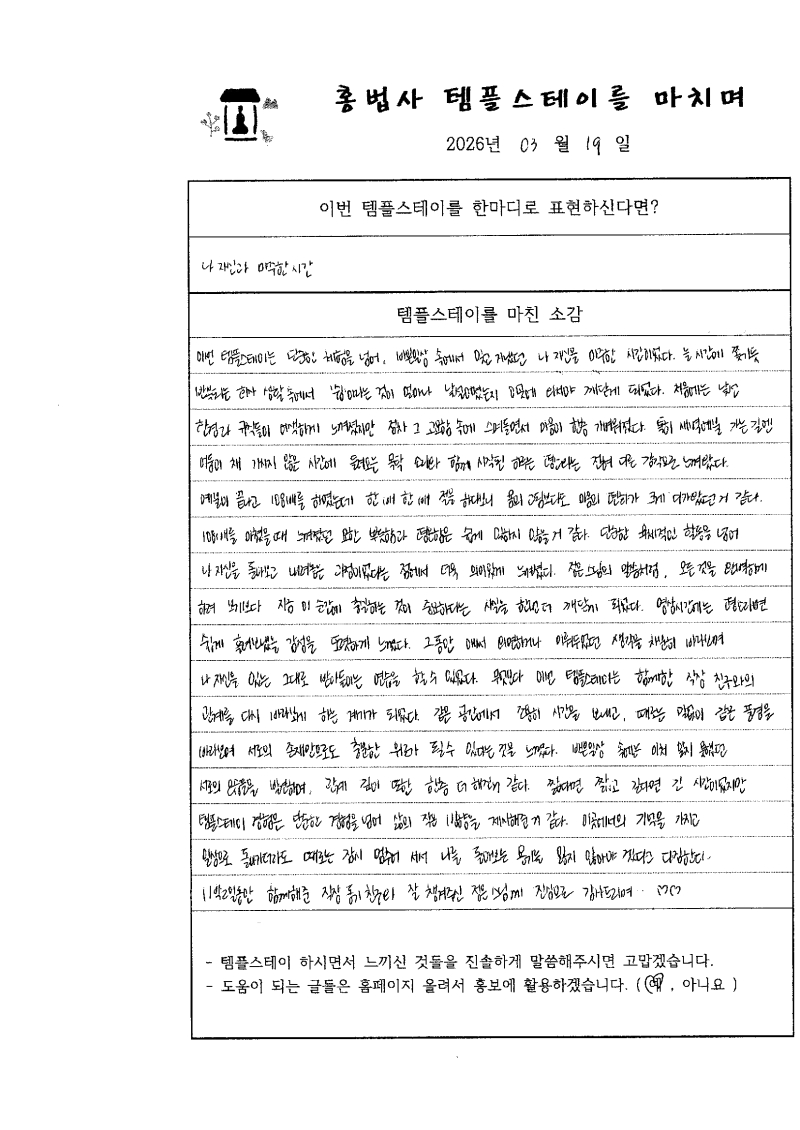 홍법사 템플스테이를 마치며
2026년 03 월 19 일
이번 템플스테이를 한마디로 표현하신다면?
나 자신과 마주한 시간
템플스테이를 마친 소감
이번 템플스테이는 단순한 체험을 넘어, 바쁜일상 속에서 잊고 지냈던 나 자신을 마주한 시간이었다. 늘 시간에 쫓기듯
반복되는 회사 생활 속에서 '쉼'이라는 것이 얼마나 낯설었는지 이곳에 와서야 깨닫게 되었다. 처음에는 낯선
환경과 규칙들이 어색하게 느껴졌지만 점차 그 고요함 속에 스며들면서 마음이 한층 가벼워졌다. 특히 새벽예불 가는길엔
어둠이 채 가시지 않은 시간에 들려오는 목탁 소리와 함께 시작된 하루는 평소와는 전혀 다른 감각으로 느껴졌다.
예불이 끝나고 108배를 하였는데 한 배 한 배 절을 하다보니 몸의 고됨보다도 마음의 변화가 크게 다가왔던 거 같다.
108배를 마쳤을때 느껴졌던 묘한 뿌듯함과 평온함은 쉽게 잊히지 않을 거 같다. 단순한 육체적인 활동을 넘어
나 자신을 돌아보고 내려놓는 과정이었다는 점에서 더욱 의미있게 느껴졌다. 젊은스님의 말씀처럼, 모든 것을 완벽하게
하려 하기보다 지금 이 순간에 집중하는 것이 중요하다는 사실을 한번 더 깨닫게 되었다. 명상시간에는 평소라면
쉽게 흘려보냈을 감정을 또렷하게 느꼈다. 그동안 애써 외면하거나 미뤄두었던 생각을 차분히 바라보며
나 자신을 있는 그대로 받아들이는 연습을 할 수 있었다. 무엇보다 이번 템플스테이는 함께한 직장 친구와의
관계를 다시 바라보게 하는 계기가 되었다. 같은 공간에서 조용히 시간을 보내고, 때로는 말없이 같은 풍경을
바라보며 서로의 존재만으로도 충분한 위로가 될수 있다는 것을 느꼈다. 바쁜일상 속에는 미처 알지 못했던
서로의 모습들을 발견하며, 관계 깊이 또한 한층 더 해진거 같다. 짧다면 짧고 길다면 긴 시간이었지만
템플스테이 경험은 단순한 경험을 넘어 삶의 작은 방향을 제시해준거 같다. 이곳에서의 기억을 가지고
일상으로 돌아가더라도 때로는 잠시 멈추어 서서 나를 돌아보는 용기를 잃지 않아야 겠다고 다짐한다.
1박2일동안 함께해준 직장 동기 친구와 잘 챙겨주신 젊은 스님께 진심으로 감사드리며.. ♡♡
- 템플스테이 하시면서 느끼신 것들을 진솔하게 말씀해주시면 고맙겠습니다.
- 도움이 되는 글들은 홈페이지 올려서 홍보에 활용하겠습니다. ( 예 , 아니요 )